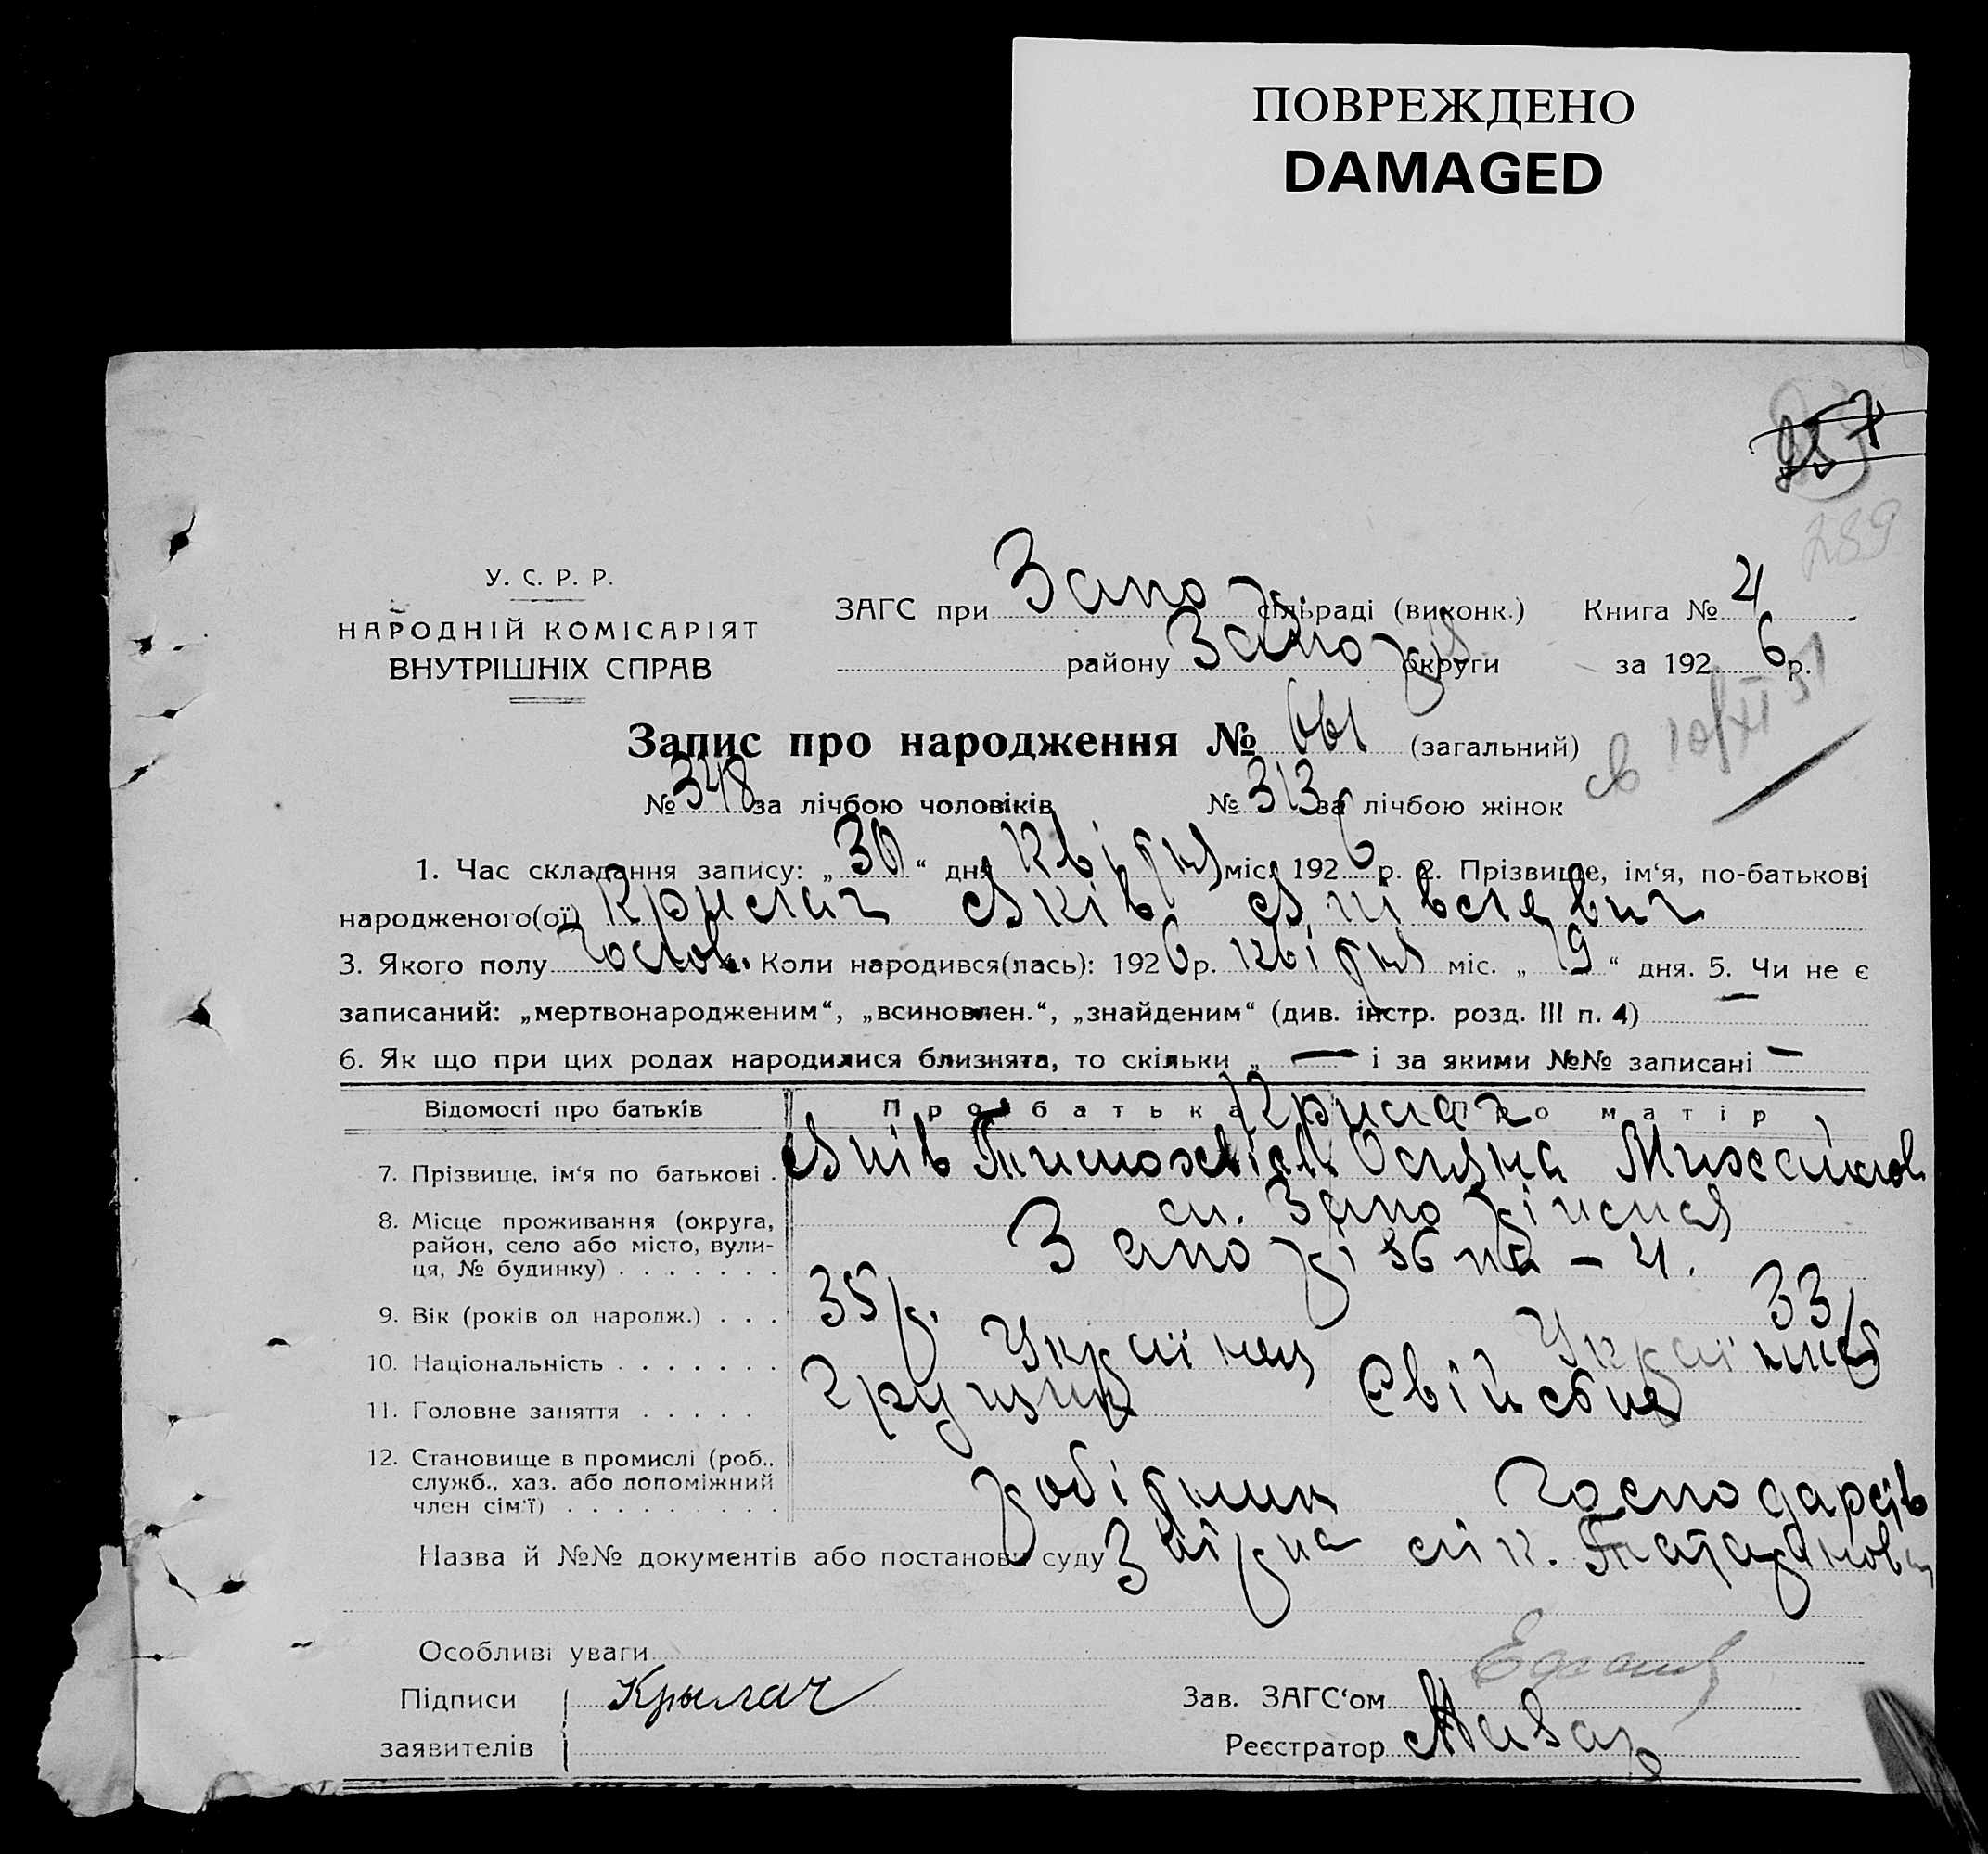 ПОВРЕЖДЕНО
DAMAGED
257
289
У. С. Р. Р.
НАРОДНІЙ КОМІСАРІЯТ
ВНУТРІШНІХ СПРАВ
ЗАГС при Запоріз сільраді (виконк.) Книга № 4
району Запоріз округи за 192 6 р.
10/XI 51
Запис про народження № 661 (загальний)
№ 348 за лічбою чоловіків № 313 за лічбою жінок
1. Час складання запису: „ 30 “ дня квітня міс. 192 6 р. 2. Прізвище, ім‘я, по-батькові
народженого(ої) Крилач Яків Яківлевич
3. Якого полу чолов. 4. Коли народився(лась): 192 6 р. квітня міс. „ 19 “ дня. 5. Чи не є
записаний: „мертвонародженим“, „всиновлен.“, „знайденим“ (див. інстр. розд. III п. 4) —
6. Як що при цих родах народилися близнята, то скільки „ — і за якими №№ записані —
Відомості про батьків Про батька Про матір
Крилач
7. Прізвище, ім‘я по батькові . Яків Тимохвієв Оксана Михайлов
8. Місце проживання (округа, район, село або місто, вулиця, № будинку) . . . . . . . ст. Запоріжжя
Запорізька – 4.
9. Вік (років од народж.) . . . 35 р. 33 р
10. Національність . . . . . . . Українец Українка
11. Головне заняття . . . . . Грущик Свійське
12. Становище в промислі (роб., служб., хаз. або допоміжний член сім‘ї) . . . . . . . . . робітник господарсів
Назва й №№ документів або постанови суду
Особливі уваги
Підписи Крылач Зав. ЗАГС‘ом
заявителів Реєстратор